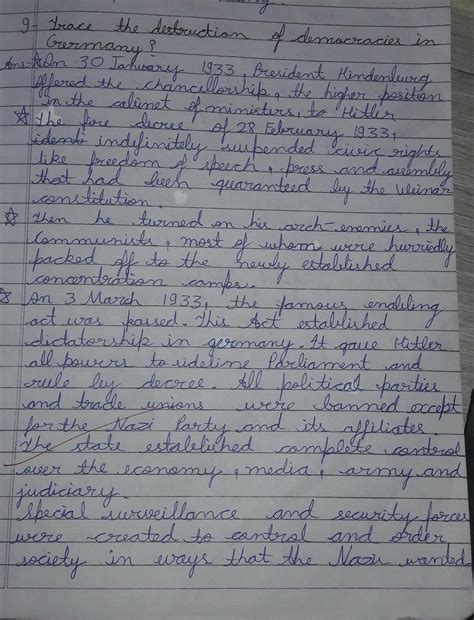 9- Trace the destruction of democracies in
Germany?
Ans- ☆ On 30 January 1933, President Hindenburg
offered the chancellorship, the higher position
in the cabinet of ministers, to Hitler
☆ The fire decree of 28 February 1933,
indefinitely suspended civic rights
like freedom of speech, press and assembly
that had been guaranteed by the Weimar
constitution.
☆ Then he turned on his arch-enemies, the
Communists, most of whom were hurriedly
packed off to the newly established
concentration camps.
☆ On 3 March 1933, the famous enabling
act was passed. This Act established
dictatorship in germany. It gave Hitler
all powers to sideline Parliament and
rule by decree. All political parties
and trade unions were banned except
for the Nazi Party and its affiliates.
The state established complete control
over the economy, media, army and
judiciary.
Special surveillance and security forces
were created to control and order
society in ways that the Nazis wanted.